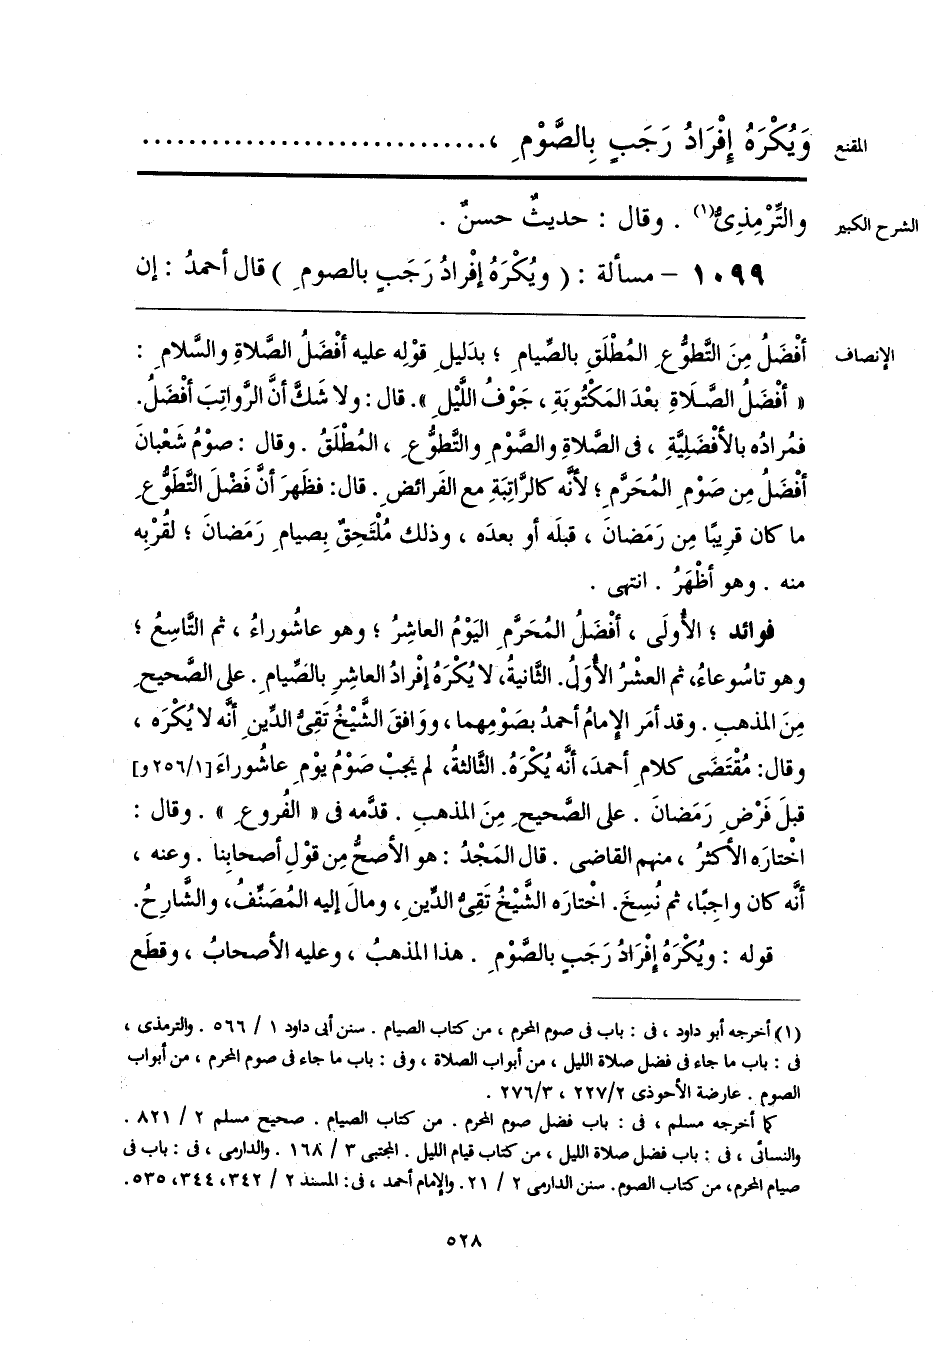 المقنع وَيُكْرَهُ إِفْرَادُ رَجَبٍ بِالصَّوْمِ ، ..............................
الشرح الكبير والتِّرْمِذِىُّ(١) . وقال : حديثٌ حسنٌ .
١٠٩٩ – مسألة : ( ويُكْرَهُ إفْرادُ رَجَبٍ بالصومِ ) قال أحمدُ : إن
الإنصاف أفْضَلُ مِنَ التَّطوُّعِ المُطْلَقِ بالصِّيامِ ؛ بدَليلِ قوْلِه عليه أفْضَلُ الصَّلاةِ والسَّلامِ :
« أفْضَلُ الصَّلاةِ بعْدَ المَكْتُوبَةِ ، جَوْفُ اللَّيْلِ ». قال : ولا شَكَّ أنَّ الرَّواتِبَ أفْضَلُ.
فمُرادُه بالأفْضَلِيَّةِ ، فى الصَّلاةِ والصَّوْمِ والتَّطوُّعِ ، المُطْلَقُ . وقال : صوْمُ شَعْبانَ
أفْضَلُ مِن صَوْمِ المُحَرَّمِ ؛ لأنَّه كالرَّاتِبَةِ مع الفَرائضِ . قال: فظَهرَ أنَّ فَضْلَ التَّطَوُّعِ
ما كان قرِيبًا مِن رَمَضانَ ، قبلَه أو بعدَه ، وذلك مُلْتَحِقٌ بصِيامِ رَمَضانَ ؛ لقُرْبِه
منه . وهو أظْهَرُ . انتهى .
فوائد ؛ الأُولَى ، أفْضَلُ المُحَرَّمِ اليَوْمُ العاشِرُ ؛ وهو عاشُوراءُ ، ثم التَّاسِعُ ؛
وهو تاسُوعاءُ، ثم العشْرُ الأُوَلُ. الثَّانيةُ، لا يُكْرَهُ إفْرادُ العاشِرِ بالصِّيامِ . على الصَّحيحِ
مِنَ المذهبِ . وقد أمَر الإِمامُ أحمدُ بصَوْمِهما، ووَافقَ الشَّيْخُ تَقِىُّ الدِّينِ أنَّه لا يُكْرَه ،
وقال: مُقْتَضَى كلامِ أحمدَ، أنَّه يُكْرَهُ. الثَّالثةُ، لم يجِبْ صَوْمُ يوْمِ عاشُوراءَ [٢٥٦/١و]
قبلَ فَرْضِ رَمَضانَ . على الصَّحيحِ مِنَ المذهبِ . قدَّمه فى « الفُروعِ » . وقال :
اخْتارَه الأكثرُ ، منهم القاضى . قال المَجْدُ : هو الأصحُّ مِن قوْلِ أصحابِنا . وعنه ،
أنَّه كان واجِبًا، ثم نُسِخَ. اخْتارَه الشَّيْخُ تَقِىُّ الدِّينِ ، ومالَ إليه المُصَنِّفُ، والشَّارِحُ.
قوله : ويُكْرَهُ إفْرادُ رَجَبٍ بالصَّوْمِ . هذا المذهبُ ، وعليه الأصحابُ ، وقطَع
(١) أخرجه أبو داود ، فى : باب فى صوم المحرم ، من كتاب الصيام . سنن أبى داود ١ / ٥٦٦ . والترمذى ،
فى : باب ما جاء فى فضل صلاة الليل ، من أبواب الصلاة ، وفى : باب ما جاء فى صوم المحرم ، من أبواب
الصوم . عارضة الأحوذى ٢٢٧/٢ ، ٢٧٦/٣ .
كما أخرجه مسلم ، فى : باب فضل صوم المحرم . من كتاب الصيام . صحيح مسلم ٢ / ٨٢١ .
والنسائى ، فى : باب فضل صلاة الليل ، من كتاب قيام الليل . المجتبى ٣ / ١٦٨ . والدارمى ، فى : باب فى
صيام المحرم، من كتاب الصوم. سنن الدارمى ٢ / ٢١. والإمام أحمد ، فى: المسند ٢ / ٣٤٢، ٣٤٤، ٥٣٥.
٥٢٨